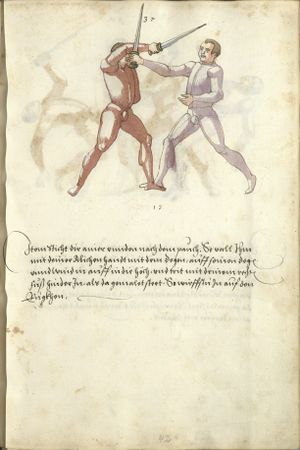 37
15
Item Sticht dir ainer vnnden nach dem pauch, So vall Im
mit deiner Lincken handt mit dem degen auff seinen dege
vnnd wind in auff in die höch, und trit mit deinem rech
fuß hinder In als da gemalet stet, So würffstu In auf den
Ruckhen.
42